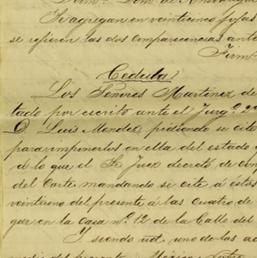 Se agregan en veintiuno fojas
se refieren las dos comparecencias ante
Firm.
Cedula
Los Señores Martinez de
tado por escrito ante el Juzg.º 2º
D. Luis Mendez pidiendo se cite
para imponerlos en ella del estado
á lo que el Sr Juez decretó de con
del Corte mandando se cite á éstos
veintiuno del presente á las cuatro de
que en la Casa nº 12 de la Calle del
Y siendo ud. uno de los ac